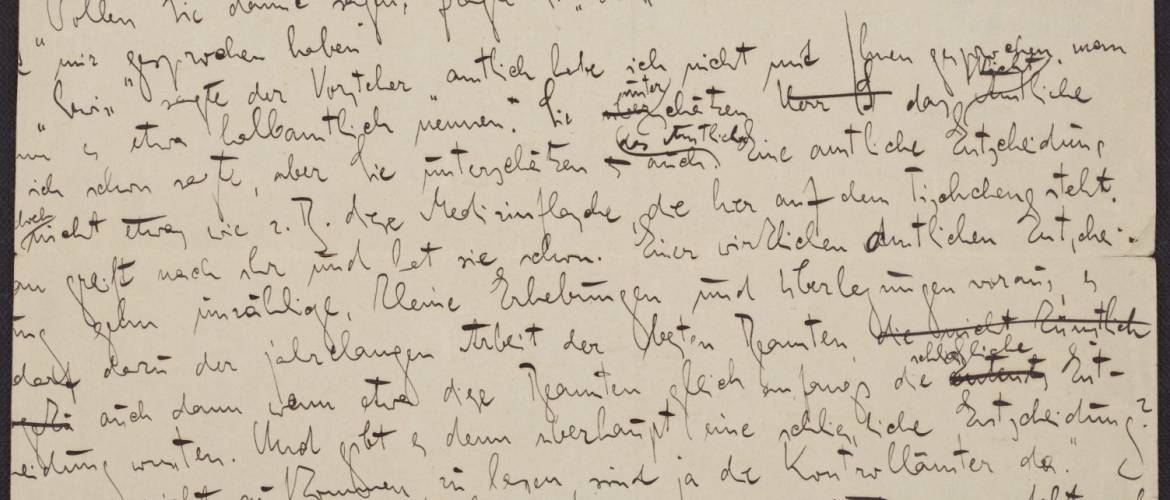 "Wollen Sie damit sagen,
mir gesprochen haben"
"Gewiss" sagte der Vorsteher "amtlich habe ich nicht mit Ihnen gesprochen, man
es etwa halbamtlich nennen. Sie unterschätzen Herr das nicht Amtliche
ich schon sagte, aber Sie unterschätzen das Amtliche auch. Eine amtliche Entscheidung
doch nicht etwas wie z. B. diese Medizinflasche, die hier auf dem Tischchen steht.
greift nach ihr und hat sie schon. Einer wirklichen amtlichen Entschei-
ung gehn unzählige, kleine Erhebungen und Überlegungen voraus, es
darf dazu der jahrelangen Arbeit der besten Beamten, die nicht künstlich
auch dann wenn etwa diese Beamten gleich anfangs die schliessliche Ent-
eidung wussten. Und gibt es denn überhaupt eine schliessliche Entscheidung?
zu lassen, sind ja die Kontrollämter da."